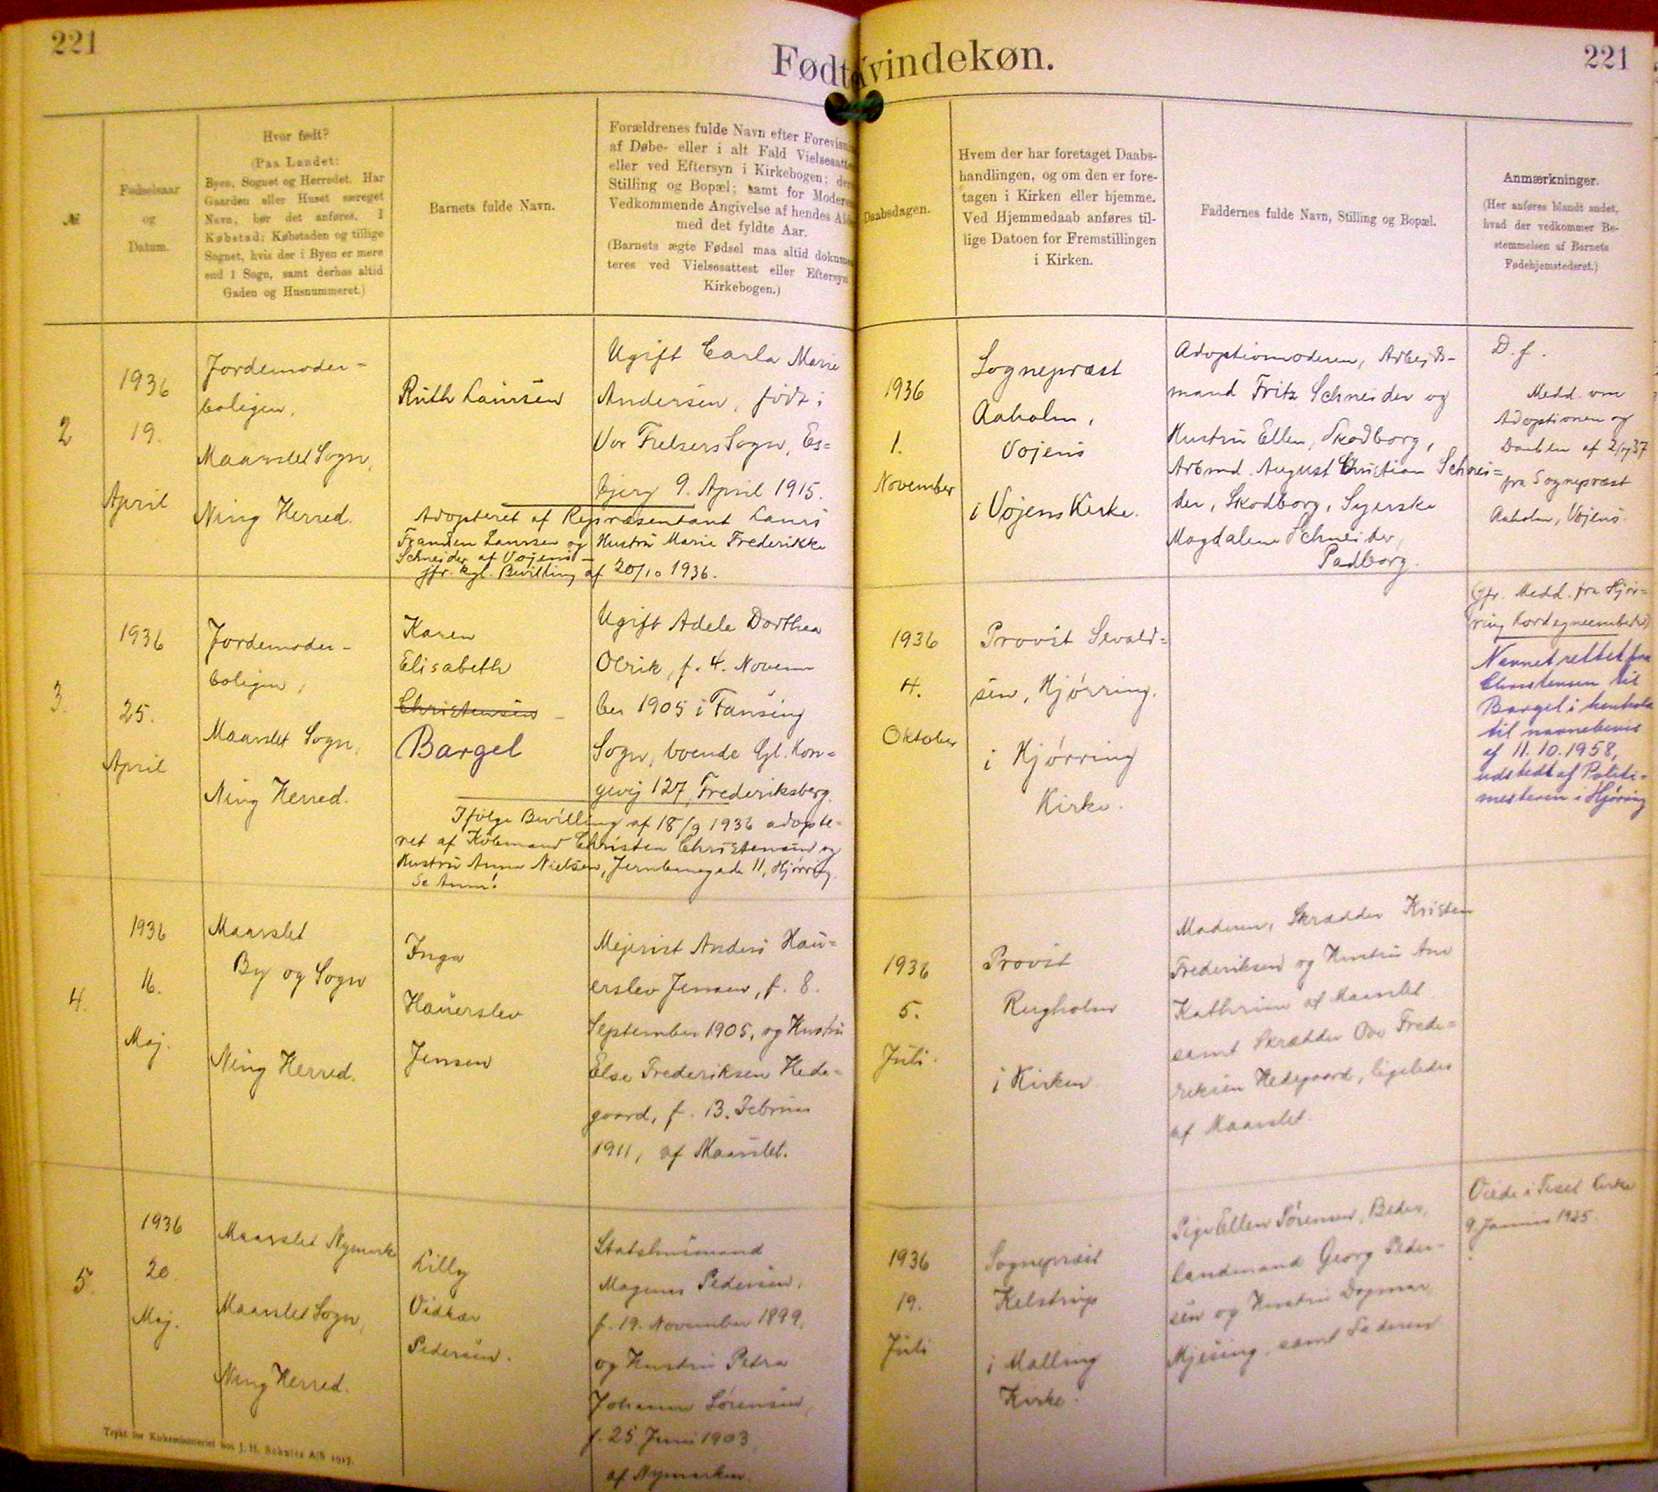 221
Født Kvindekøn.
221
№
Fødselsaar
og
Datum.
Hvor født?
(Paa Landet:
Byen, Sognet og Herredet. Har
Gaarden eller Huset særeget
Navn, bør det anføres. I
Købstad: Købstaden og tillige
Sognet, hvis der i Byen er mere
end 1 Sogn, samt derhos altid
Gaden og Husnummeret.)
Barnets fulde Navn.
Forældrenes fulde Navn efter Forevisn
af Døbe- eller i alt Fald Vielsesatte
eller ved Eftersyn i Kirkebogen; der
Stilling og Bopæl; samt for Modere
Vedkommende Angivelse af hendes Al
med det fyldte Aar.
(Barnets ægte Fødsel maa altid dokume
teres ved Vielsesattest eller Eftersyn
Kirkebogen.)
Daabsdagen.
Hvem der har foretaget Daabs-
handlingen, og om den er fore-
tagen i Kirken eller hjemme.
Ved Hjemmedaab anføres til-
lige Datoen for Fremstillingen
i Kirken.
Faddernes fulde Navn, Stilling og Bopæl.
Anmærkninger.
(Her anføres blandt andet,
hvad der vedkommer Be-
stemmelsen af Barnets
Fødehjemstederet.)
2
1936
19.
April
Jordemoder-
boligen,
Maarslet Sogn,
Ning Herred.
Ruth Laursen
Ugift Carla Marie
Andersen, født i
Vor Frelsers Sogn, Es=
bjerg 9. April 1915.
Adopteret af Repræsentant Laurs
Frandsen Laursen og Hustru Marie Frederikke
Schneider af Vojens -
jfr. kgl. Bevilling af 20/10 1936.
1936
1.
November
Sognepræst
Aaholm,
Vojens
i Vojens Kirke.
Adoptivmoderen, Arbejds-
mand Fritz Schneider og
Hustru Ellen, Skodborg,
Arbmd. August Christian Schnei=
der, Skodborg, Syerske
Magdalene Schneider,
Padborg.
D. f.
Medd. om
Adoptionen og
Daaben af 2/1 37
fra Sognepræst
Aaholm, Vojens.
3.
1936
25.
April
Jordemoder-
boligen,
Maarslet Sogn,
Ning Herred.
Karen
Elisabeth
Christensen
Bargel
Ugift Adele Dorthea
Olrik, f. 4. Novem
ber 1905 i Fausing
Sogn, boende Gl. Kon=
gevej 127, Frederiksberg.
Ifølge Bevilling af 18/9 1936 adopte=
ret af Købmand Christen Christensen og
Hustru Anna Nielsen, Jernbanegade 11, Hjørring.
Se Anm!
1936
4.
Oktober
Provst Sevald=
sen, Hjørring.
i Hjørring
Kirke.
(jfr. Medd. fra Hjør=
ring Kordegneembede)
Navnet rettet fra
Christensen til
Bargel i henhold
til navnebevis
af 11.10.1958,
udstedt af Politi-
mesteren i Hjørring
4.
1936
16.
Maj.
Maarslet
By og Sogn
Ning Herred.
Inga
Hauerslev
Jensen
Mejerist Anders Hau=
erslev Jensen, f. 8.
September 1905, og Hustru
Else Frederiksen Hede=
gaard, f. 13. Februar
1911, af Maarslet.
1936
5.
Juli.
Provst
Rugholm
i Kirken
Moderen, Skrædder Kristen
Frederiksen og Hustru Ane
Kathrine af Maarslet
samt Skrædder Ove Frede=
riksen Hedegaard, ligeledes
af Maarslet.
5.
1936
20.
Maj.
Maarslet Nymark
Maarslet Sogn,
Ning Herred.
Lilly
Vidkær
Pedersen.
Statshusmand
Magnus Pedersen,
f. 19. November 1899,
og Hustru Petra
Johanne Sørensen,
f. 25 Juni 1903
af Nymarken.
1936
19.
Juli
Sognepræst
Kelstrup
i Malling
Kirke.
Pige Ellen Sørensen, Beder,
Landmand Georg Peder-
sen og Hustru Dagmar,
Mjesing, samt Faderen
Viede i Tiset Kirke
9 Januar 1925.
Trykt for Kirkeministeriet hos J. H. Schultz A/S 1917.